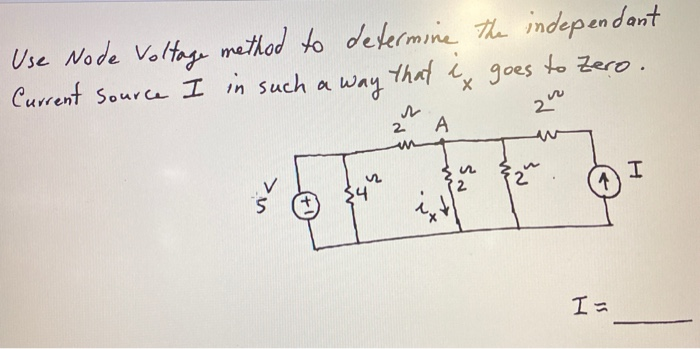 Use Node Voltage method to determine the independant
Current Source I in such a way that ix goes to zero.
2Ω A 2Ω
5V + - 4Ω ix 2Ω 2Ω I
I = ____